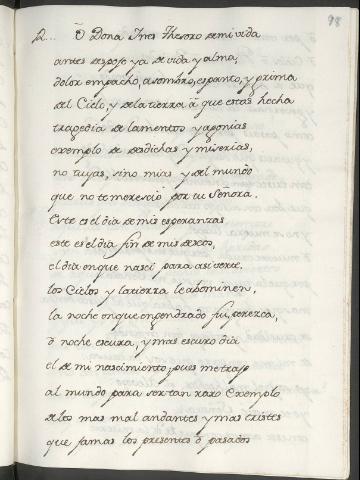 98
R... Ō Dona Ines thesoro de mi vida
antes desposo ya de vida y alma,
dolor empacho, asombro, espanto, y grima
del Cielo, y de la tierra à que estas hecha
tragedia de lamentos y agonias
exemplo de desdichas y miserias,
no tuyas, sino mias y del mundo
que no te merescio por tu Señora.
Este es el dia de mis esperanzas
este es el dia fin de mis deseos,
el dia en que nasci para asi verte.
los Cielos y la tierra le abominen,
la noche en que engendrado fui, perezca,
ò noche escura, y mas escuro dia
el de mi nascimiento, pues me trajo
al mundo para ser tan raro Exemplo
de los mas mal andantes y mas tristes
que jamas los presentes ò pasados